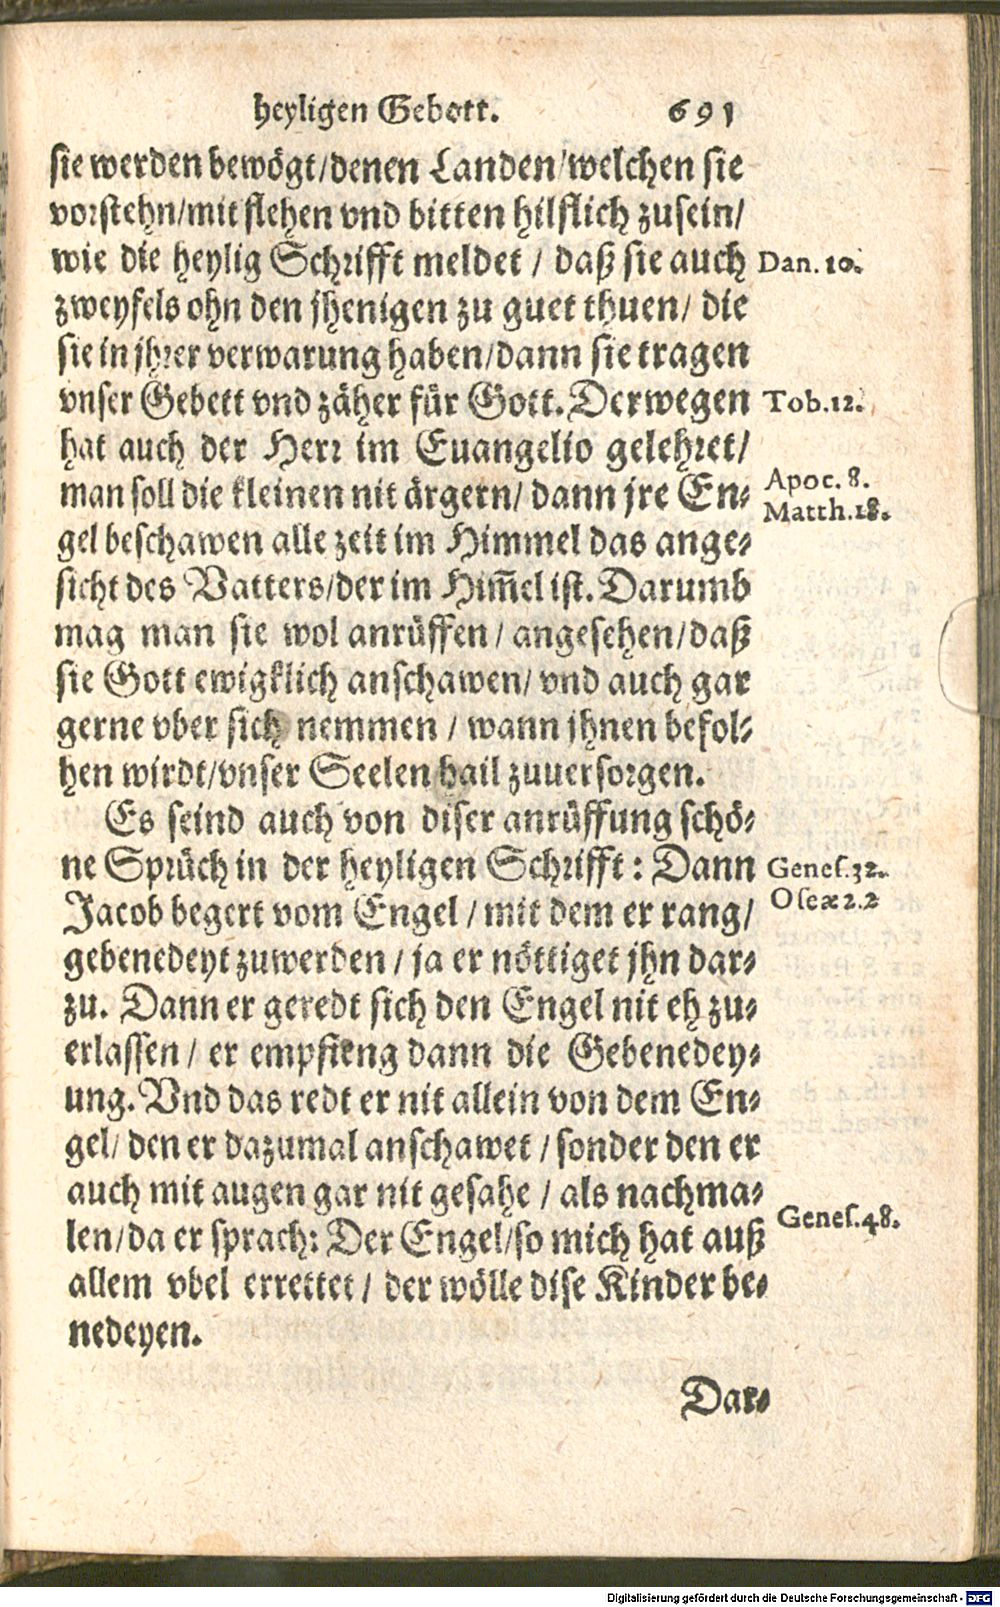 heyligen Gebott. 691
sie werden bewögt/denen Landen/welchen sie
vorstehn/mit flehen vnd bitten hilflich zusein/
wie die heylig Schrifft meldet / daß sie auch
Dan. 10.
zweyfels ohn den jhenigen zu guet thuen/ die
sie in jhrer verwarung haben/dann sie tragen
vnser Gebett vnd zäher für Gott. Derwegen
Tob.12.
hat auch der Herr im Euangelio gelehret/
man soll die kleinen nit ärgern/ dann jre En-
Apoc. 8.
Matth.18.
gel beschawen alle zeit im Himmel das ange-
sicht des Vatters/der im Him̅el ist. Darumb
mag man sie wol anrüffen / angesehen/daß
sie Gott ewigklich anschawen/ vnd auch gar
gerne vber sich nemmen / wann jhnen befol-
hen wirdt/vnser Seelen hail zuuersorgen.
Es seind auch von diser anrüffung schö-
ne Sprüch in der heyligen Schrifft: Dann
Genes.32.
Oseæ 2.2
Jacob begert vom Engel / mit dem er rang/
gebenedeyt zuwerden / ja er nöttiget jhn dar-
zu. Dann er geredt sich den Engel nit eh zu-
erlassen / er empfieng dann die Gebenedey-
ung. Vnd das redt er nit allein von dem En-
gel/ den er dazumal anschawet / sonder den er
auch mit augen gar nit gesahe / als nachma-
len/da er sprach: Der Engel/so mich hat auß
Genes.48.
allem vbel errettet / der wölle dise Kinder be-
nedeyen.
Dar-
Digitalisierung gefördert durch die Deutsche Forschungsgemeinschaft - DFG